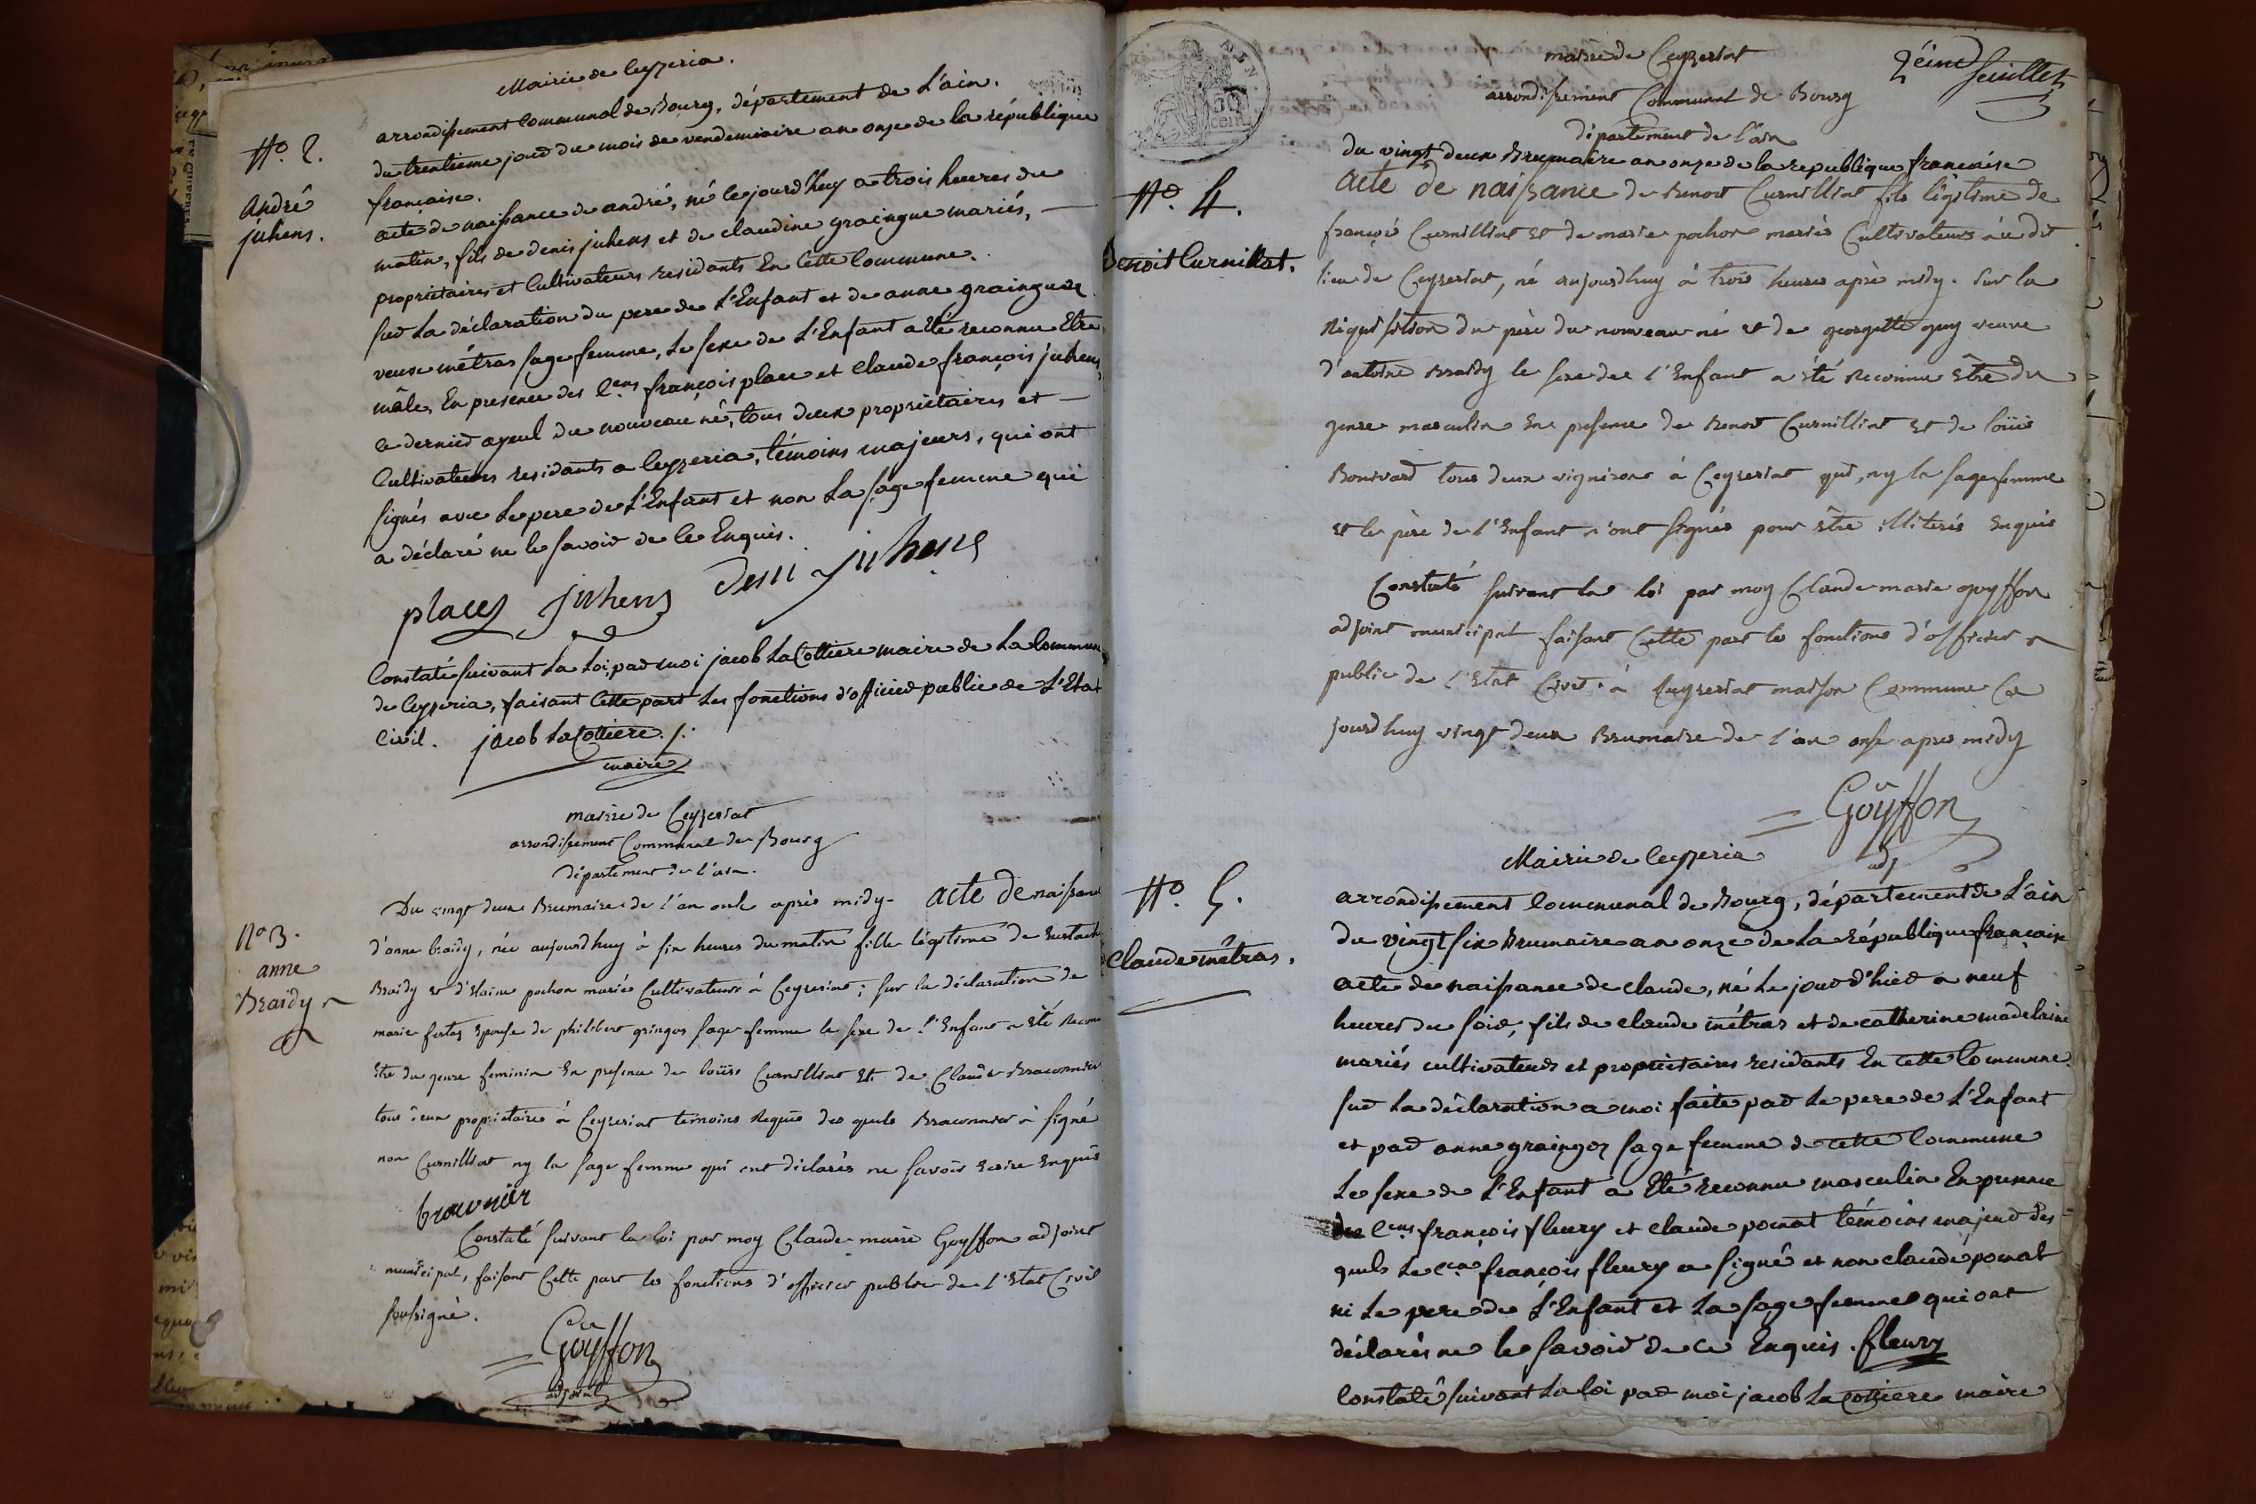 Mairie de Ceyzeria.
arrondissement Communal de Bourg, département de L'ain.
N.o 2.
du trentieme jour du mois de vendemiaire an onze de la république
française.
André
juhens.
acte de naissance de andré, né le jourd'huy a trois heures du
matin, fils de denis juhens et de claudine graingue mariés,
proprietaires et Cultivateurs residants En Cette Commune.
sur La déclaration du pere de L'Enfant et de anne grainguez
veuve métras sage femme, Le sexe de L'Enfant a été reconnu Etre
mâle, En presence des C.ens françois place et Claude françois juhens
ce dernier ayeul du nouveau né, tous deux propriétaires et
Cultivateurs residants a Ceyzeria, témoins majeurs, qui ont
signés avec Le pere de L'Enfant et non La sage femme qui
a déclaré ne le savoir de ce Enquis.
place juhens Deni juhens
Constaté suivant La Loi, par moi jacob LaCottiere maire de La Commune
de Ceyzeria, faisant Cette part Les fonctions d'officier public de L'Etat
Civil. jacob LaCottiere
maire
mairie de Ceyzeriat
arrondissement Communal de Bourg
département de l'ain.
N.o 3.
anne
Braidy
Du vingt deux Brumaire de l'an onze après midy. acte de naissance
d'anne braidy, née aujourdhuy à six heures du matin fille légitime de
Braidy et d' pochon mariés Cultivateurs à Ceyzeriat; sur la déclaration de
marie épouse de philibert gringoz sage femme le sexe de l'Enfant a été
être du genre feminin En presence de loüis Curnillat et de Claude Braconnier
tous deux proprietaires à Ceyzeriat témoins Requis des quels Braconnier à signé
non Curnillat ny la sage femme qui ont déclarés ne savoir Ecrire Enquis
Constaté suivant la loi par moy Claude marie Goyffon adjoint
municipal, faisant Cette part les fonctions d'officier public de l'Etat Civil
soussigné.
Goÿffon
adjoint
2éme feuillet
mairie de Ceyzeriat
arrondissement Communal de Bourg
département de l'ain
du vingt deux Brumaire an onze de la republique francaise
N.o 4.
Benoit Curnillat.
acte de naissance de Benoit Curnillat fils légitime de
françois Curnillat et de marie pochon mariés Cultivateurs au dit
lieu de Ceyzeriat, né aujourdhuy à trois heures après midy. Sur la
Réquisition du père du nouveau né et de georgette guy veuve
d'antoine Braidy le sexe de l'Enfant a été Reconnu être du
genre masculin En presence de Benoit Curnillat et de loüis
Bonivard tous deux vignerons à Ceyzeriat qui, ny la sage femme
et le père de l'Enfant n'ont signés pour être illiterés Enquis
Constaté suivant la loi par moy Claude marie goyffon
adjoint municipal faisant Cette part les fonctions d'officier
public de l'Etat Civil. à Ceyzeriat maison Commune Ce
jourdhuy vingt deux Brumaire de l'an onze apres midy
Goÿffon
adj
Mairie de Ceyzeria
N.o 5.
Claude métras.
arrondissement Communal de Bourg, département de L'ain
du vingt six Brumaire an onze de La république française
acte de naissance de claude, né Le jour d'hier a neuf
heures du soir, fils de claude métras et de catherine madelaine
mariés cultivateurs et propriétaires residants En cette Commune.
sur La déclaration a moi faite par Le pere de L'Enfant
et par anne graingoz sage femme de cette Commune
Le sexe de L'Enfant a été reconnu masculin En presence
des C.ens françois fleury et claude ponat témoins majeur des
quels Le C.en françois fleury a signé et non claude ponat
ni Le pere de L'Enfant et La sage femme qui ont
déclarés ne le savoir de ce Enquis. fleury
Constaté suivant La Loi par moi jacob LaCottiere maire